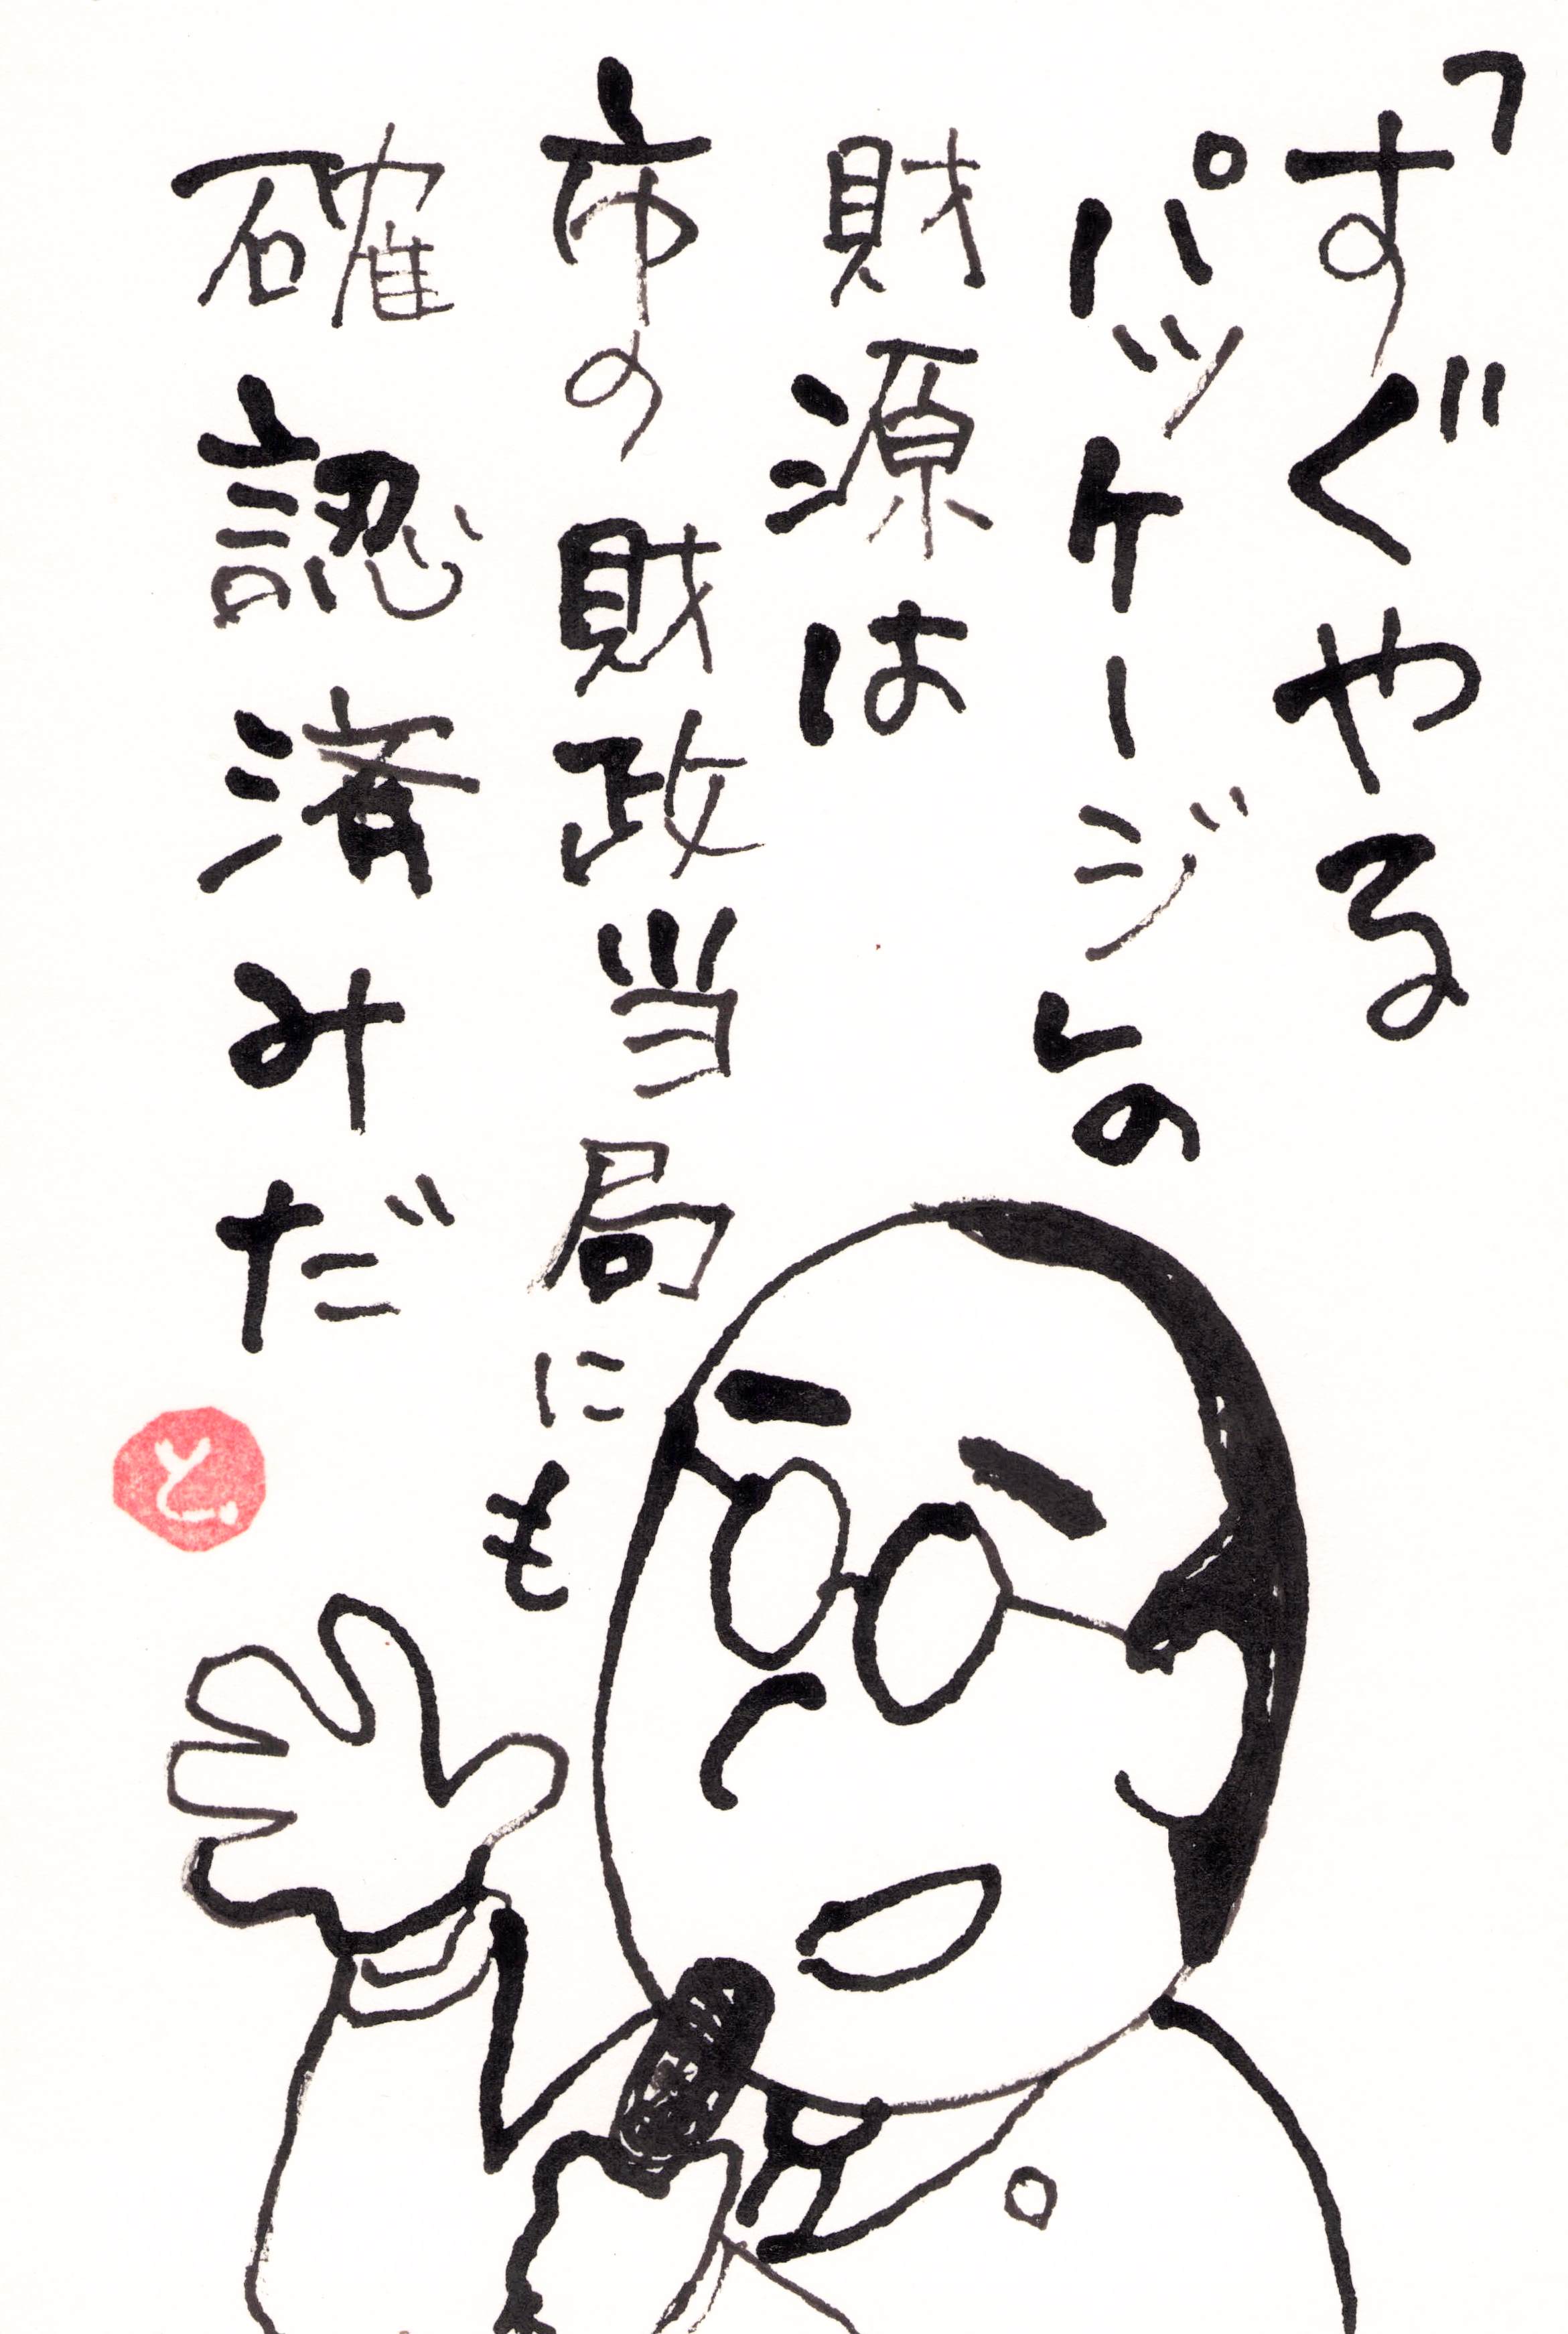 「すぐやる
パッケージ」の
財源は
市の財政当局にも
確認済みだ
と